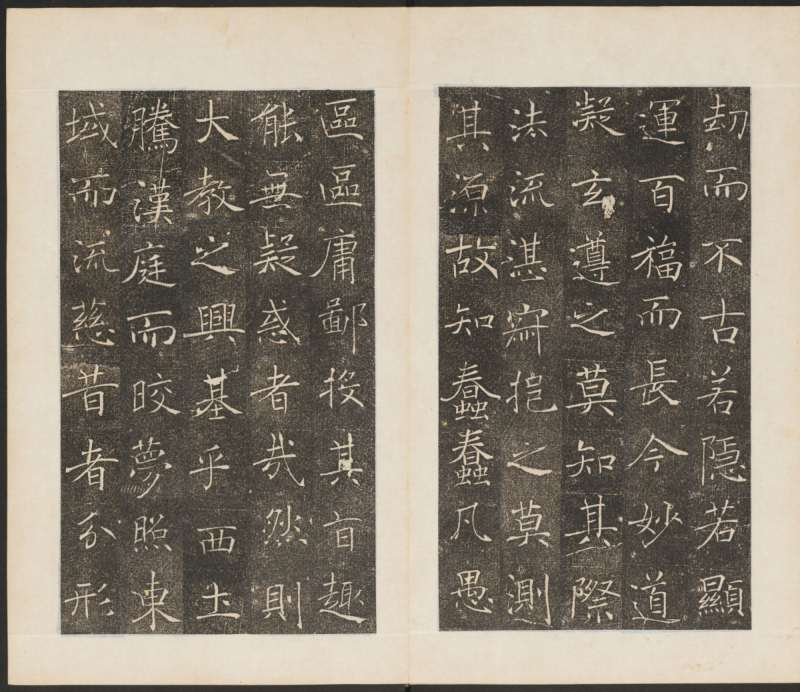 劫而不古若隱若顯
運百福而長今妙道
凝玄遵之莫知其際
法流湛寂挹之莫測
其源故知蠢蠢凡愚
區區庸鄙投其旨趣
能無疑惑者哉然則
大教之興基乎西土
騰漢庭而皎夢照東
域而流慈昔者分形